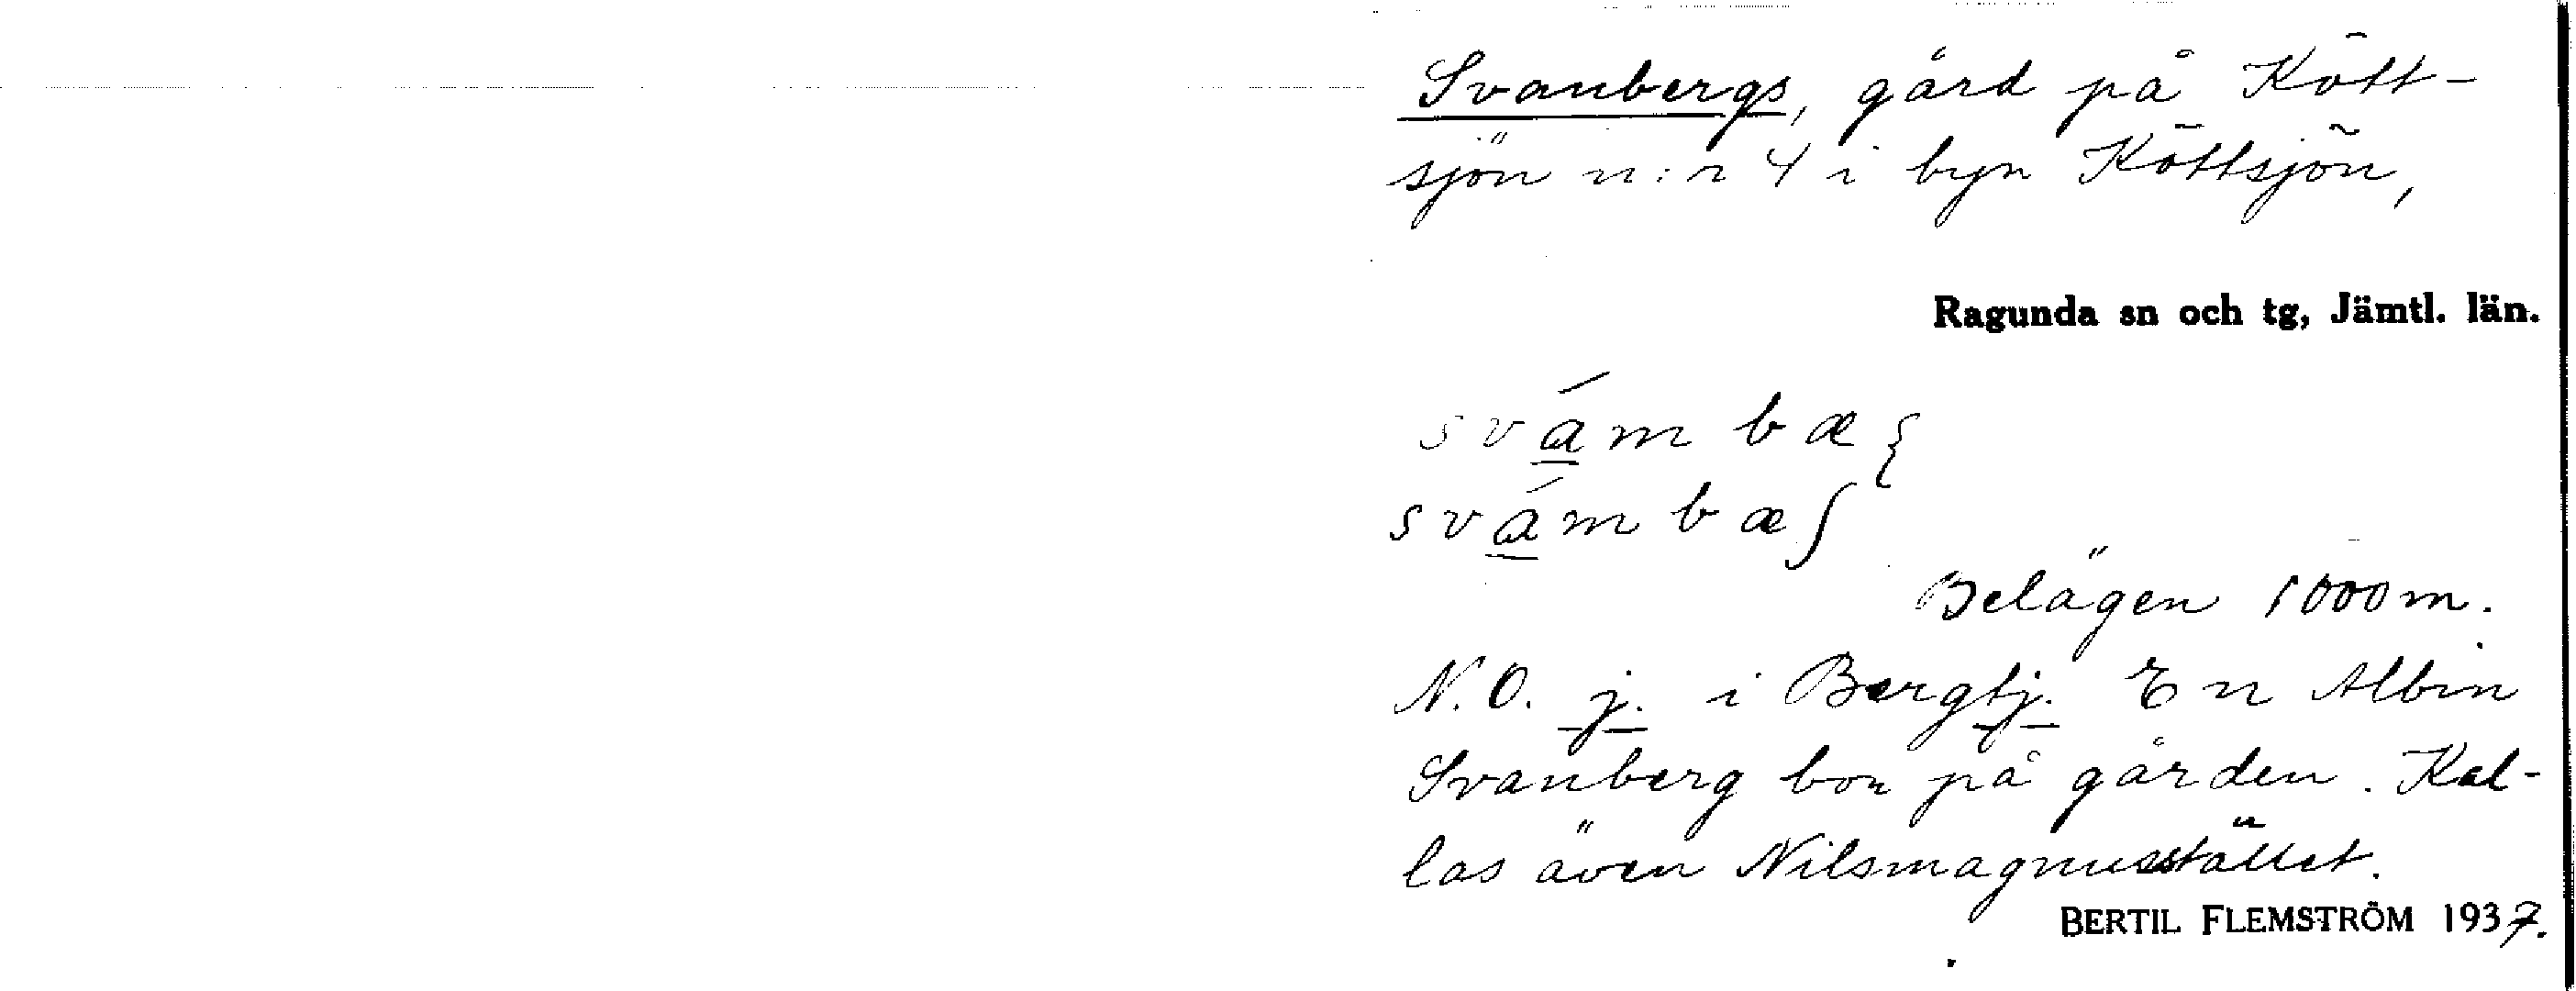 Svanbergs, gård på Kött-
sjön n:r 4 i byn Köttsjön,
Ragunda sn och tg, Jämtl. län.
svám bæ
svám bæʃ
Belägen 1000 m.
N.O. j. i Bergtj. En Albin
Svanberg bor på gården. Kal-
las även Nilsmagnusstället.
BERTIL FLEMSTRÖM 1937.